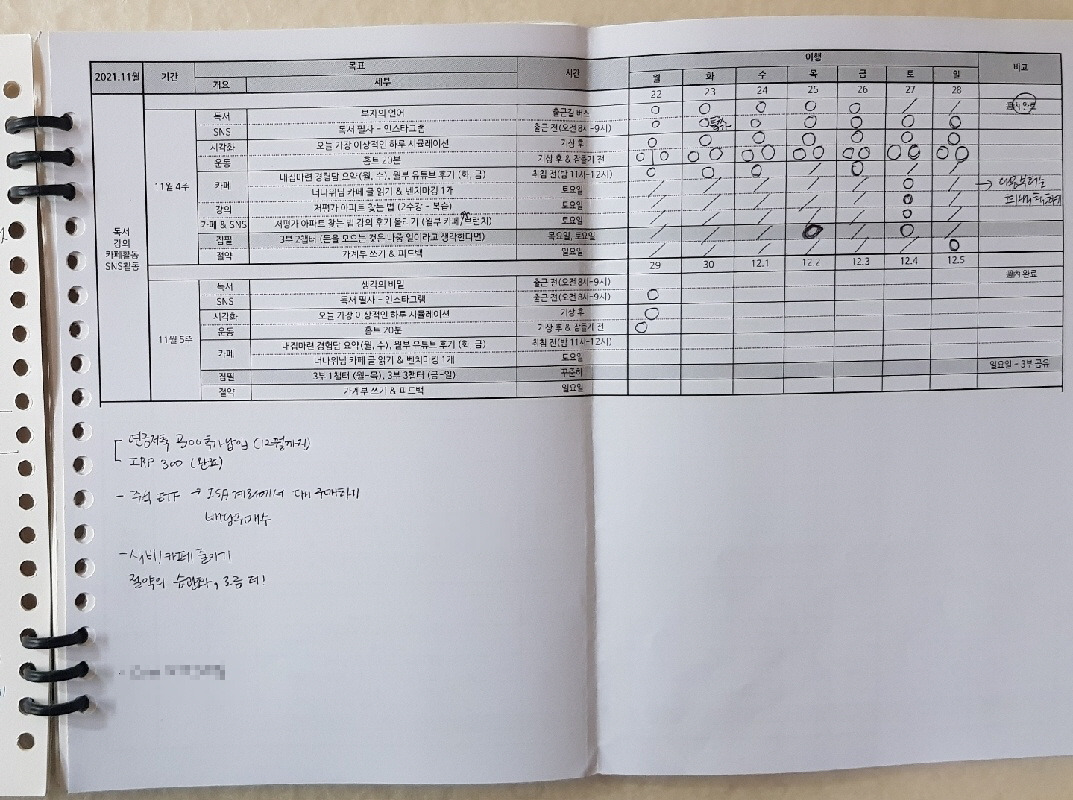 2021.11월 기간 목표 시간 이행 비고
개요 세부 월 화 수 목 금 토 일
22 23 24 25 26 27 28
독서 강의 카페활동 SNS활동
11월 4주
독서 부자의 언어 출근길 버스 완료
SNS 독서 필사 - 인스타그램 출근 전(오전 8시~9시)
시각화 오늘 가장 이상적인 하루 시뮬레이션 기상 후
운동 홈트 20분 기상 후 & 잠들기 전
카페 내집마련 경험담 요약(월, 수), 월부 유튜브 후기 (화, 금) 취침 전(밤 11시~12시)
너나위님 카페 글 읽기 & 벤치마킹 1개 토요일
강의 저평가 아파트 찾는 법 (2수강 - 복습) 토요일
카페 & SNS 저평가 아파트 찾는 법 강의 후기 올리기 (월부 카페, 브런치) 토요일
집필 3부 2챕터 (돈을 모으는 것은 나중 일이라고 생각한다면) 목요일, 토요일
절약 가계부 쓰기 & 피드백 일요일
29 30 12.1 12.2 12.3 12.4 12.5
11월 5주
독서 생각의 비밀 출근 전(오전 8시~9시) 완료
SNS 독서 필사 - 인스타그램 출근 전(오전 8시~9시)
시각화 오늘 가장 이상적인 하루 시뮬레이션 기상 후
운동 홈트 20분 기상 후 & 잠들기 전
카페 내집마련 경험담 요약(월, 수), 월부 유튜브 후기 (화, 금) 취침 전(밤 11시~12시)
너나위님 카페 글 읽기 & 벤치마킹 1개 토요일
집필 3부 1챕터 (월~목), 3부 3챕터 (금~일) 꾸준히 일요일 - 3부 공유
절약 가계부 쓰기 & 피드백 일요일
연금저축 300 추가납입
IRP 300 (완료)
- 주식 ETF → ISA 계좌에서
- 카페 줄이기
절약의 습관화, 조금 더!